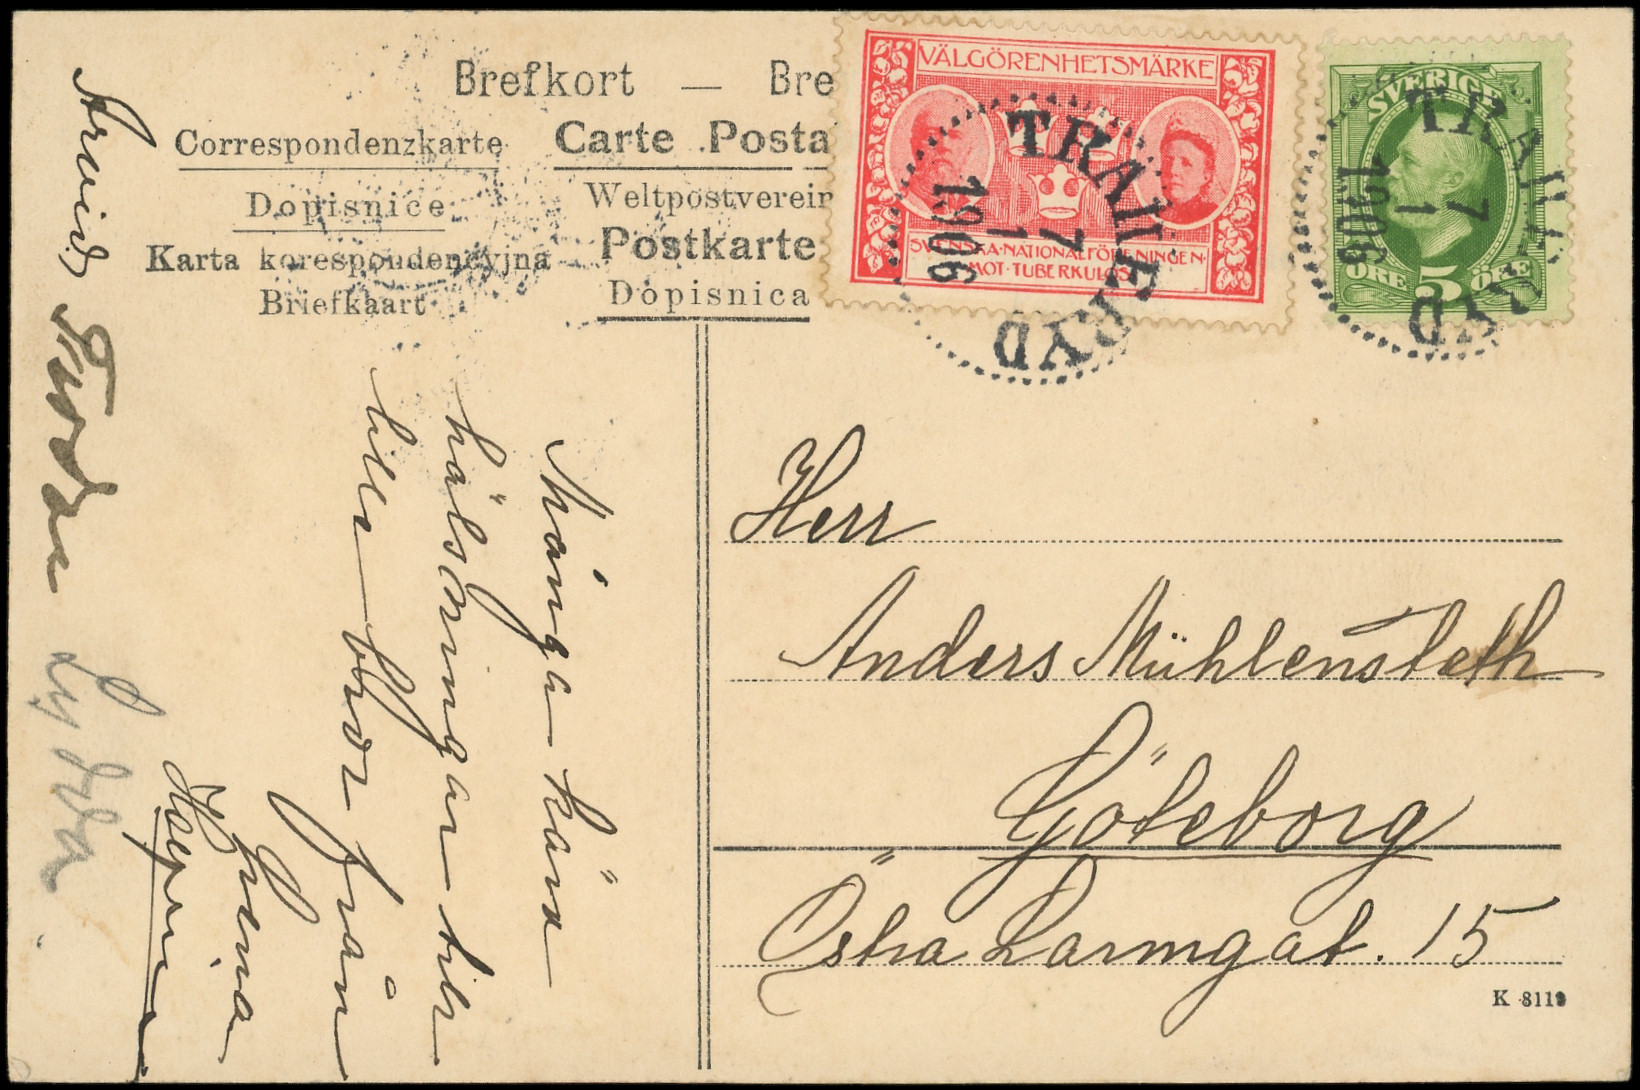 Brefkort — Bre
Correspondenzkarte
Carte Posta
Dopisnice
Weltpostverein
Karta korespondencyjna
Postkarte
Briefkaart
Dopisnica
VÄLGÖRENHETSMÄRKE
SVENSKA·NATIONALFÖRENINGEN·
MOT·TUBERKULOS
TRÄLLERYD
7
1
1906
SVERIGE
ÖRE 5 ÖRE
TRÄLLERYD
7
1
1906
Herr
Anders Mühlensteth
Göteborg
Östra Larmgat. 15
K 8119
Många kära
hälsningar till
lille bror från
Hjema
Arvid